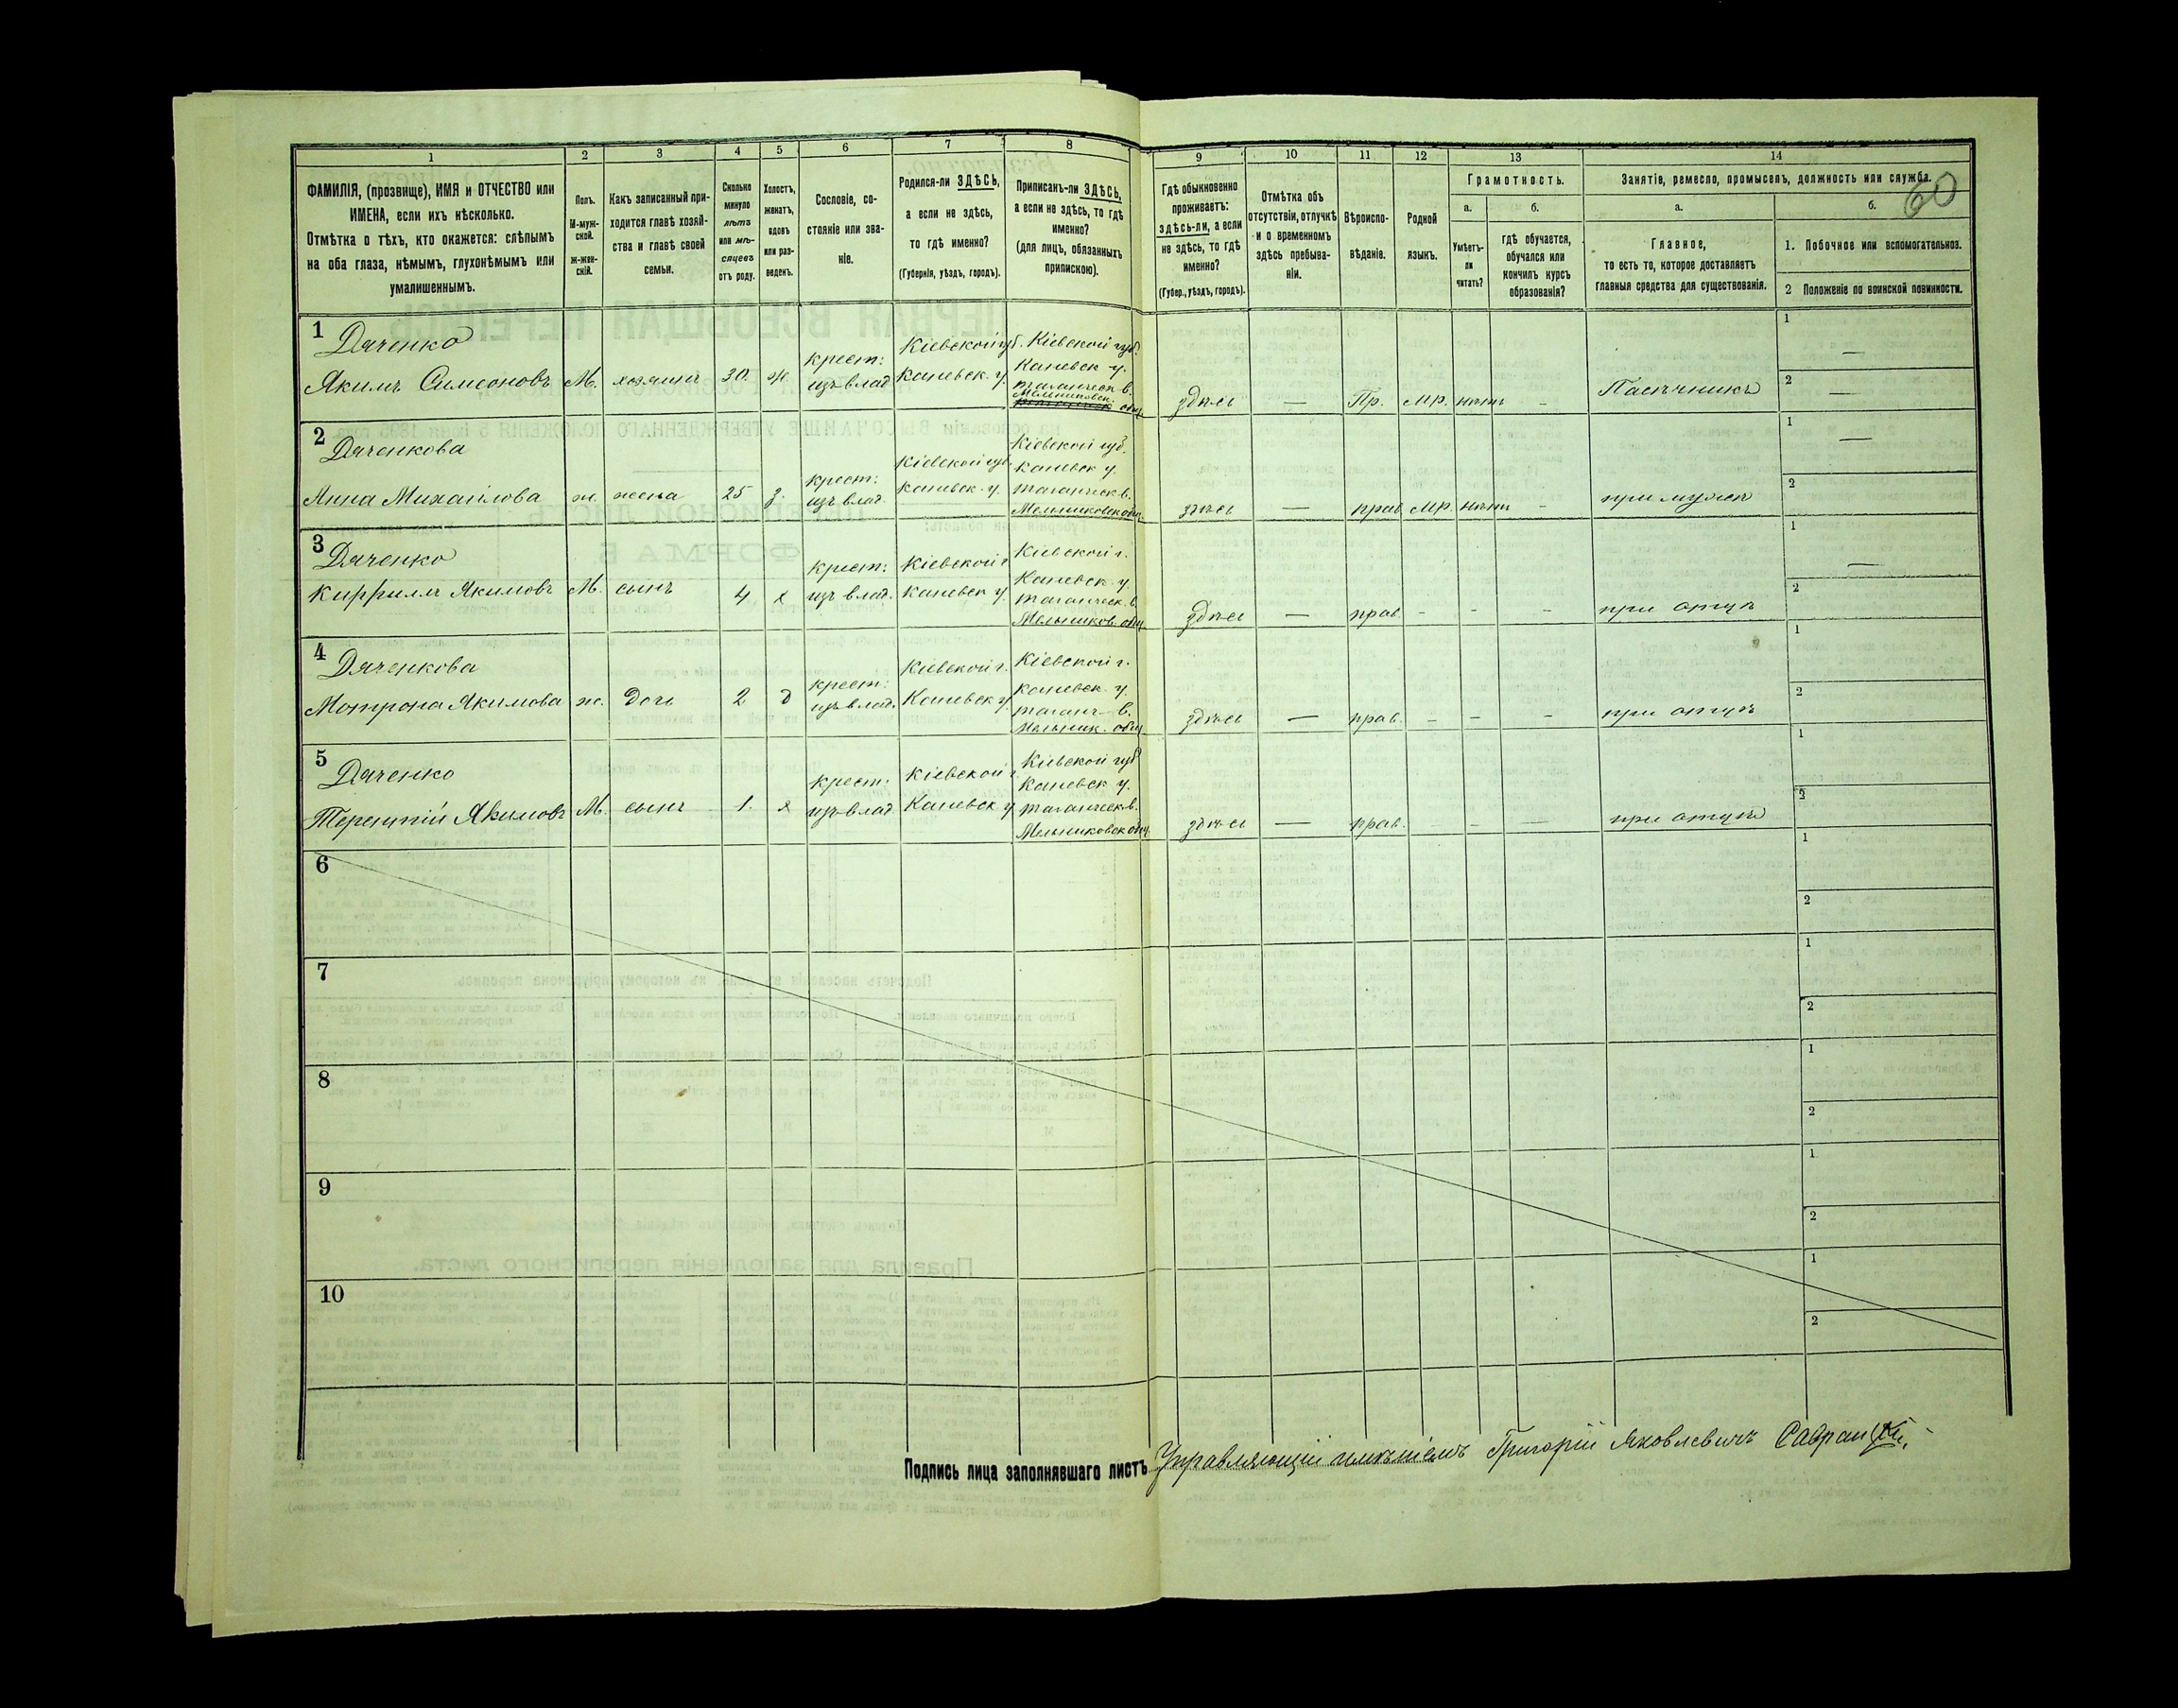 60
1 2 3 4 5 6 7 8 9 10 11 12 13 14
ФАМИЛІЯ, (прозвище), ИМЯ и ОТЧЕСТВО или
ИМЕНА, если ихъ нѣсколько.
Отмѣтка о тѣхъ, кто окажется: слѣпымъ
на оба глаза, нѣмымъ, глухонѣмымъ или
умалишеннымъ.
Полъ.
М-муж-
ской.
ж-жен-
скій.
Какъ записанный при-
ходится главѣ хозяй-
ства и главѣ своей
семьи.
Сколько
минуло
лѣтъ
или мѣ-
сяцевъ
отъ роду.
Холостъ,
женатъ,
вдовъ
или раз-
веденъ.
Сословіе, со-
стояніе или зва-
ніе.
Родился-ли ЗДѢСЬ,
а если не здѣсь,
то гдѣ именно?
(Губернія, уѣздъ, городъ).
Приписанъ-ли ЗДѢСЬ,
а если не здѣсь, то гдѣ
именно?
(для лицъ, обязанныхъ
припискою).
Гдѣ обыкновенно
проживаетъ:
здѣсь-ли, а если
не здѣсь, то гдѣ
именно?
(Губер., уѣздъ, городъ).
Отмѣтка объ
отсутствіи, отлучкѣ
и о временномъ
здѣсь пребыва-
ніи.
Вѣроиспо-
вѣданіе.
Родной
языкъ.
Грамотность.
а.
Умѣетъ-
ли
читать?
б.
гдѣ обучается,
обучался или
кончилъ курсъ
образованія?
Занятіе, ремесло, промыселъ, должность или служба.
а.
Главное,
то есть то, которое доставляетъ
главныя средства для существованія.
б.
1. Побочное или вспомогательное.
2 Положеніе по воинской повинности.
1
Дяченко
Якимъ Симеоновъ М. хозяинъ 30. ж.
крест:
изъ влад
Кіевской губ.
Каневск. у.
Кіевской губ.
Каневск у.
таганческ в.
Мельниковск.
общ.
здѣсь — Пр. Мр. нѣтъ – Пасѣчникъ
1 —
2 —
2
Дяченкова
Анна Михаилова ж. жена 25 з.
крест:
изъ влад.
Кіевской губ.
Каневск. у.
Кіевской губ.
Каневск у.
таганческ в.
Мельниковск общ.
здѣсь — прав Мр. нѣтъ – при мужѣ
1 —
2
3
Дяченко
Кириллъ Якимовъ М. сынъ 4 х
крест:
изъ влад.
Кіевской г
Каневск у.
Кіевской г.
Каневск. у.
таганческ. в.
Мельников. общ.
здѣсь — прав. – – – при отцѣ
1 —
2
4
Дяченкова
Мотрона Якимова ж. дочь 2 д
крест:
изъ влад.
Кіевской г.
Каневск у.
Кіевской г.
Каневск. у.
таганч– в.
Мельник. общ.
здѣсь — прав. – – – при отцѣ
1
2
5
Дяченко
Терентій Якимовъ М. сынъ 1. х
крест:
изъ влад.
Кіевской г.
Каневск у
Кіевской губ
Каневск у.
таганческ в.
Мельниковск общ
здѣсь — прав. – – — при отцѣ
1
2
6
1
2
7
1
2
8
1
2
9
1
2
10
1
2
Подпись лица заполнявшаго листъ Управляющій имѣніемъ Григорій Яковлевичъ